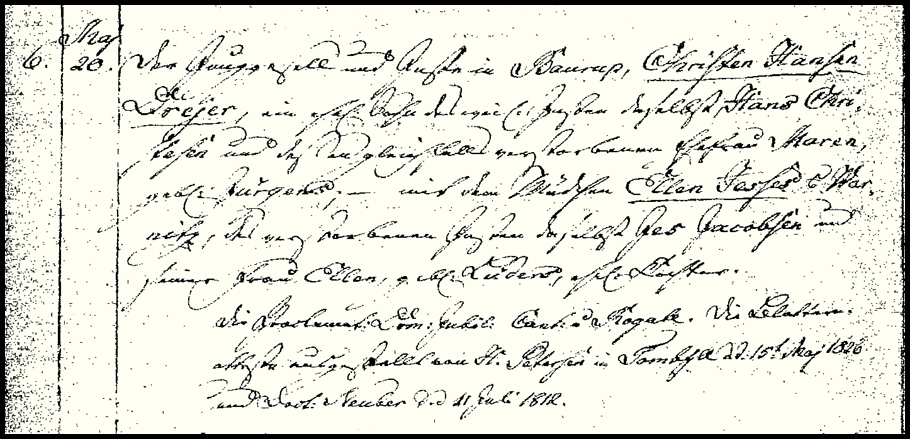 Maj
6. 20. Der Junggesell und Inste in Baurup, Christen Hansen
Drejer, ein ehel. Sohn des weil. Insten daselbst Hans Chri-
stesen und dessen gleichfalls verstorbenen Ehefrau Maren,
gebl. Jürgens; — mit dem Mädchen Ellen Jesses e War-
nitz, des verstorbenen Insten daselbst Jes Jacobsen und
seiner Frau Ellen, gebl. Lüders, ehel. Tochter.
Die Proclamat. Dom: Jubil: Cant: u Rogate. Die Blattern-
atteste ausgestellt von H. Petersen in d.d. 15t Maj 1826
und Doct. Neuber d d 11 Juli 1812.